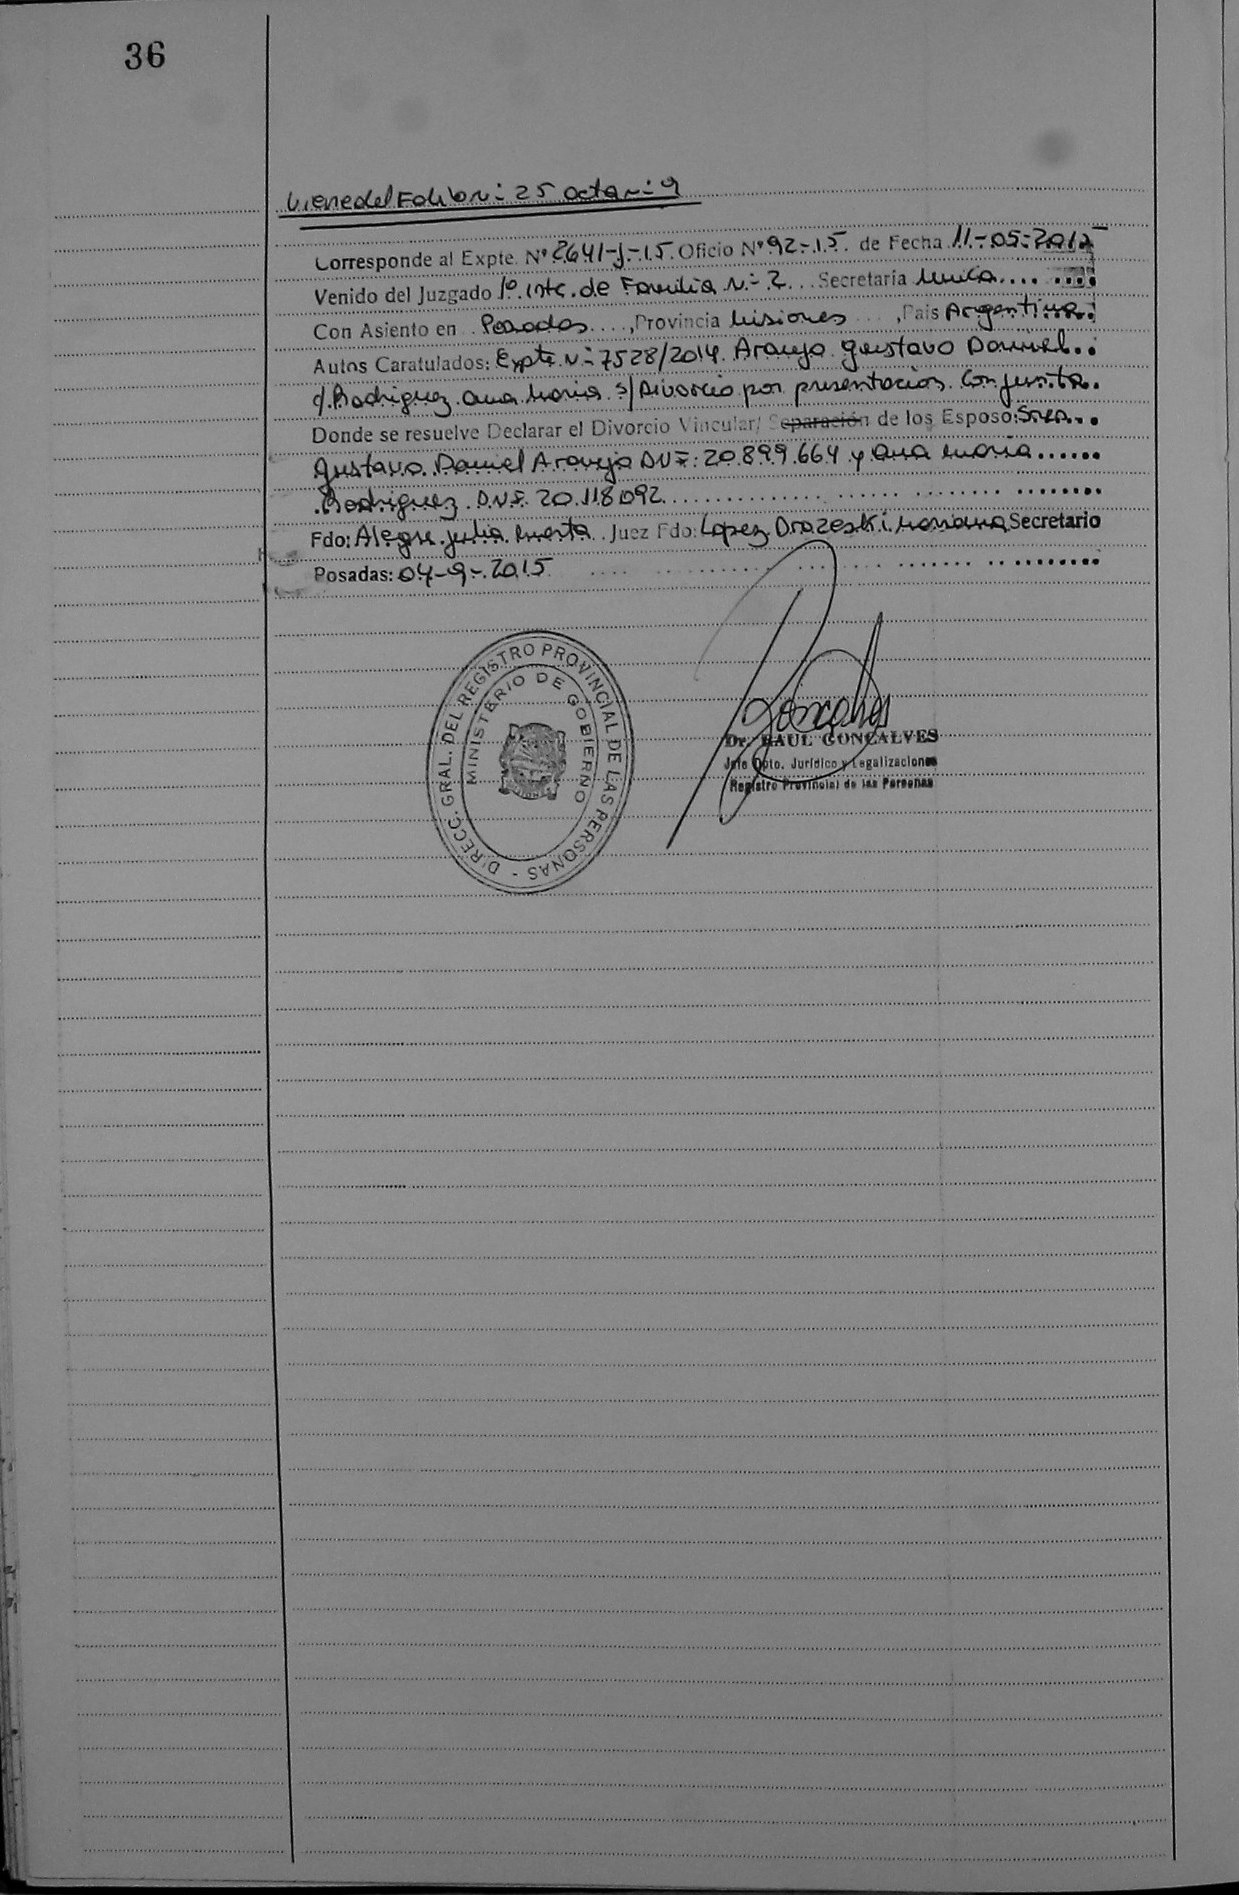 36
Viene del Folio N:- 25 acta N:- 9
Corresponde al Expte. Nº 2641-J-15. Oficio Nº 92-15. de Fecha 11-05-2015
Venido del Juzgado 1º. Inte. de Familia N:- 2... Secretaria Unica........
Con Asiento en Posadas....,Provincia Misiones ,Pais Argentina.
Autos Caratulados: Expte. N:- 7528/2014. Araujo Gustavo Daniel..
c/. Rodriguez. Ana Maria. s/ Divorcio por presentacion Conjunta.
Donde se resuelve Declarar el Divorcio Vincular/ Separación de los Esposo: Sres...
Gustavo. Daniel Araujo DNI: 20.899.664 y Ana Maria......
.Rodriguez. D.N.I. 20.118.092..............................
Fdo: Alegre. Julia. . Juez Fdo: Lopez. Mariana Secretario
Posadas: 04-9-2015 ..............................
DIRECC. GRAL. DEL REGISTRO PROVINCIAL DE LAS PERSONAS -
MINISTERIO DE GOBIERNO
Goncalves
Dr. RAUL GONCALVES
Jefe Dpto. Jurídico y Legalizaciones
Registro Provincial de las Personas